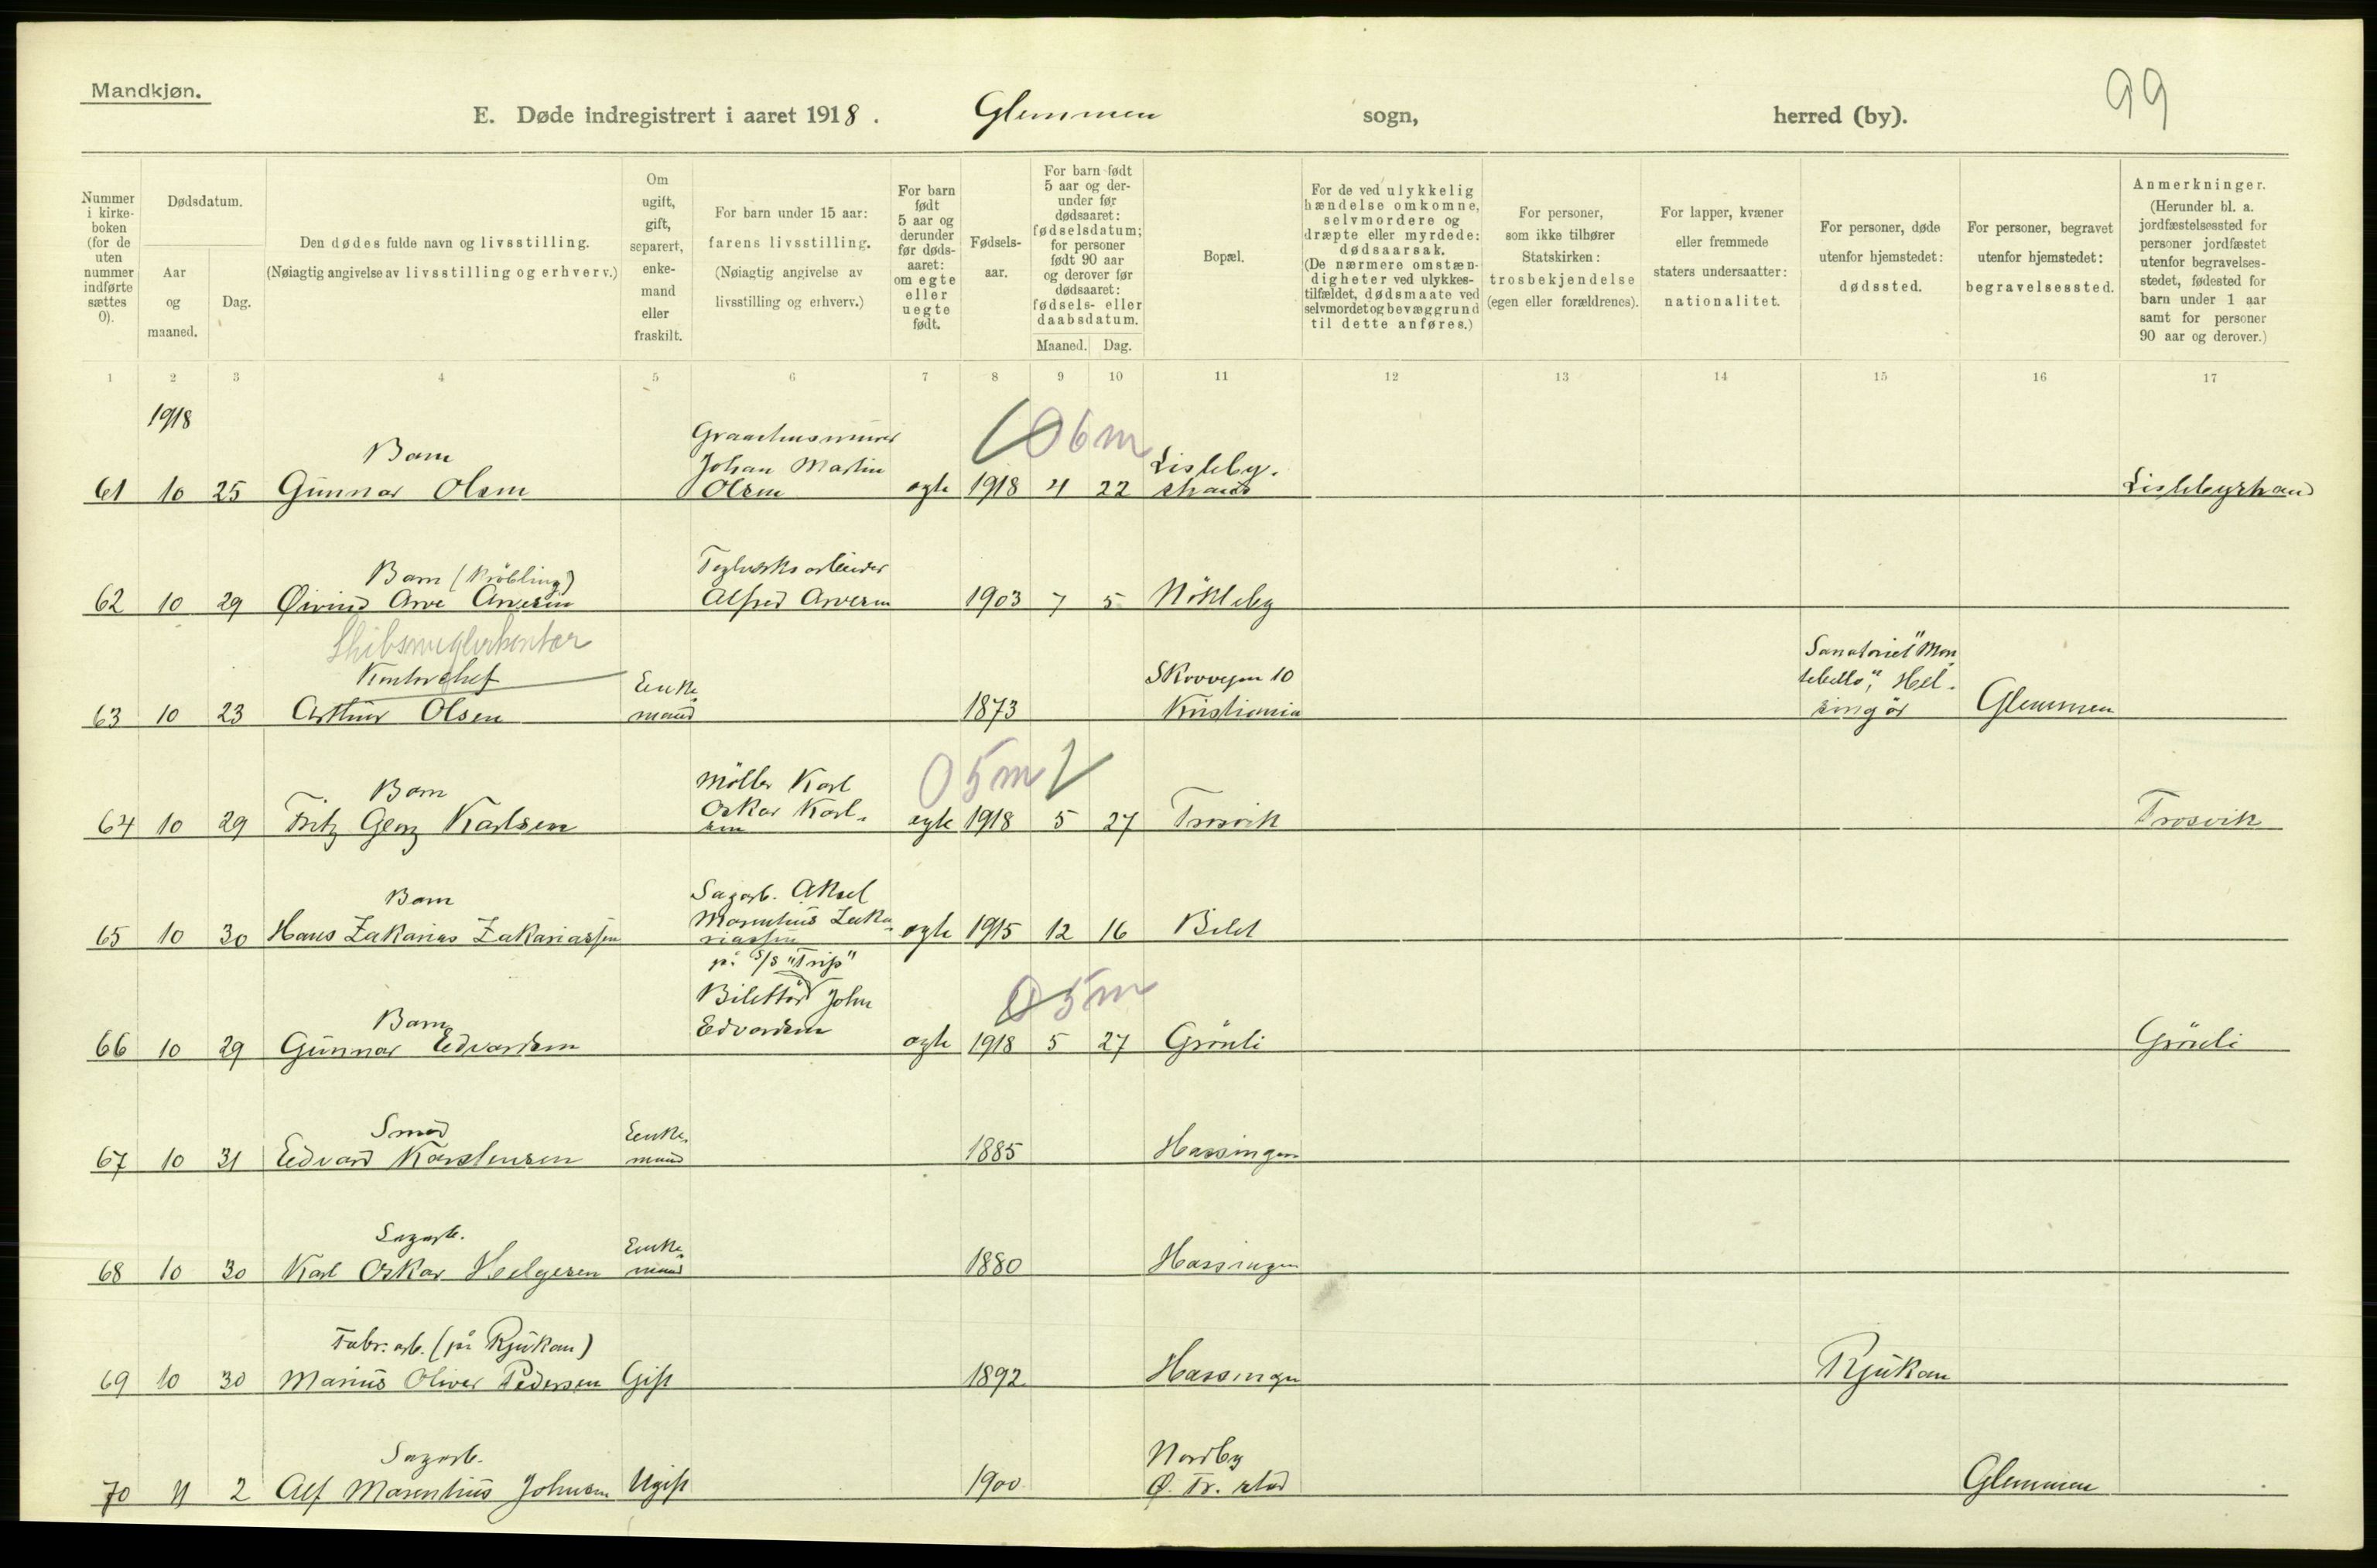 Mandkjøn.
99
E. Døde indregistrert i aaret 1918. Glemmen sogn, herred (by).
Nummer i kirkeboken (for de uten nummer indførte sættes 0).
Dødsdatum.
Aar og maaned.
Dag.
Den dødes fulde navn og livsstilling.
(Nøiagtig angivelse av livsstilling og erhverv.)
Om ugift, gift, separert, enkemand eller fraskilt.
For barn under 15 aar: farens livsstilling.
(Nøiagtig angivelse av livsstilling og erhverv.)
For barn født 5 aar og derunder før dødsaaret: om egte eller uegte født.
Fødselsaar.
For barn født 5 aar og derunder før dødsaaret: fødselsdatum; for personer født 90 aar og derover før dødsaaret: fødsels- eller daabsdatum.
Maaned. Dag.
Bopæl.
For de ved ulykkelig hændelse omkomne, selvmordere og dræpte eller myrdede: dødsaarsak.
(De nærmere omstændigheter ved ulykkestilfældet, dødsmaate ved selvmordet og bevæggrund til dette anføres.)
For personer, som ikke tilhører Statskirken: trosbekjendelse (egen eller forældrenes).
For lapper, kvæner eller fremmede staters undersaatter: nationalitet.
For personer, døde utenfor hjemstedet: dødssted.
For personer, begravet utenfor hjemstedet: begravelsessted.
Anmerkninger.
(Herunder bl. a. jordfæstelsessted for personer jordfæstet utenfor begravelsesstedet, fødested for barn under 1 aar samt for personer 90 aar og derover.)
1 2 3 4 5 6 7 8 9 10 11 12 13 14 15 16 17
1918
06m
Barn Johan Martin Lisleby-
61 10 25 Gunnar Olsen Olsen egte 1918 4 22 strand Lislebystrand
Barn (Kröbling)
62 10 29 Øivind Arve Arvesen Alfred Arvesen 1903 7 5 Nökleby
Skibsmeglerkontor
Kontorchef Enke- Skovvejen 10 Sanatoriet "Montebello", Hel-
63 10 23 Arthur Olsen mand 1873 Kristiania singör Glemmen
05m
Barn Möller Karl
64 10 29 Fritz Karlsen Oskar Karlsen egte 1918 5 27 Trosvik Trosvik
Barn Sagarb. Aksel
65 10 30 Hans Zakarias Zakariassen Marentius Zakariassen egte 1915 12 16 Bilet
på S/S "Trip"
05m
Barn Billettör John
66 10 29 Gunnar Edvardsen Edvardsen egte 1918 5 27 Grönli Grönli
Smed Enke-
67 10 31 Edvard Karstensen mand 1885 Hassingen
Sagarb. Enke-
68 10 30 Karl Oskar Helgesen mand 1880 Hassingen
Fabr. arb. (på Rjukan)
69 10 30 Marius Oliver Pedersen Gift 1892 Hassingen Rjukan
Sagarb. Nordby
70 11 2 Alf Marentius Johnsen Ugift 1900 Ø. Fr. stad Glemmen